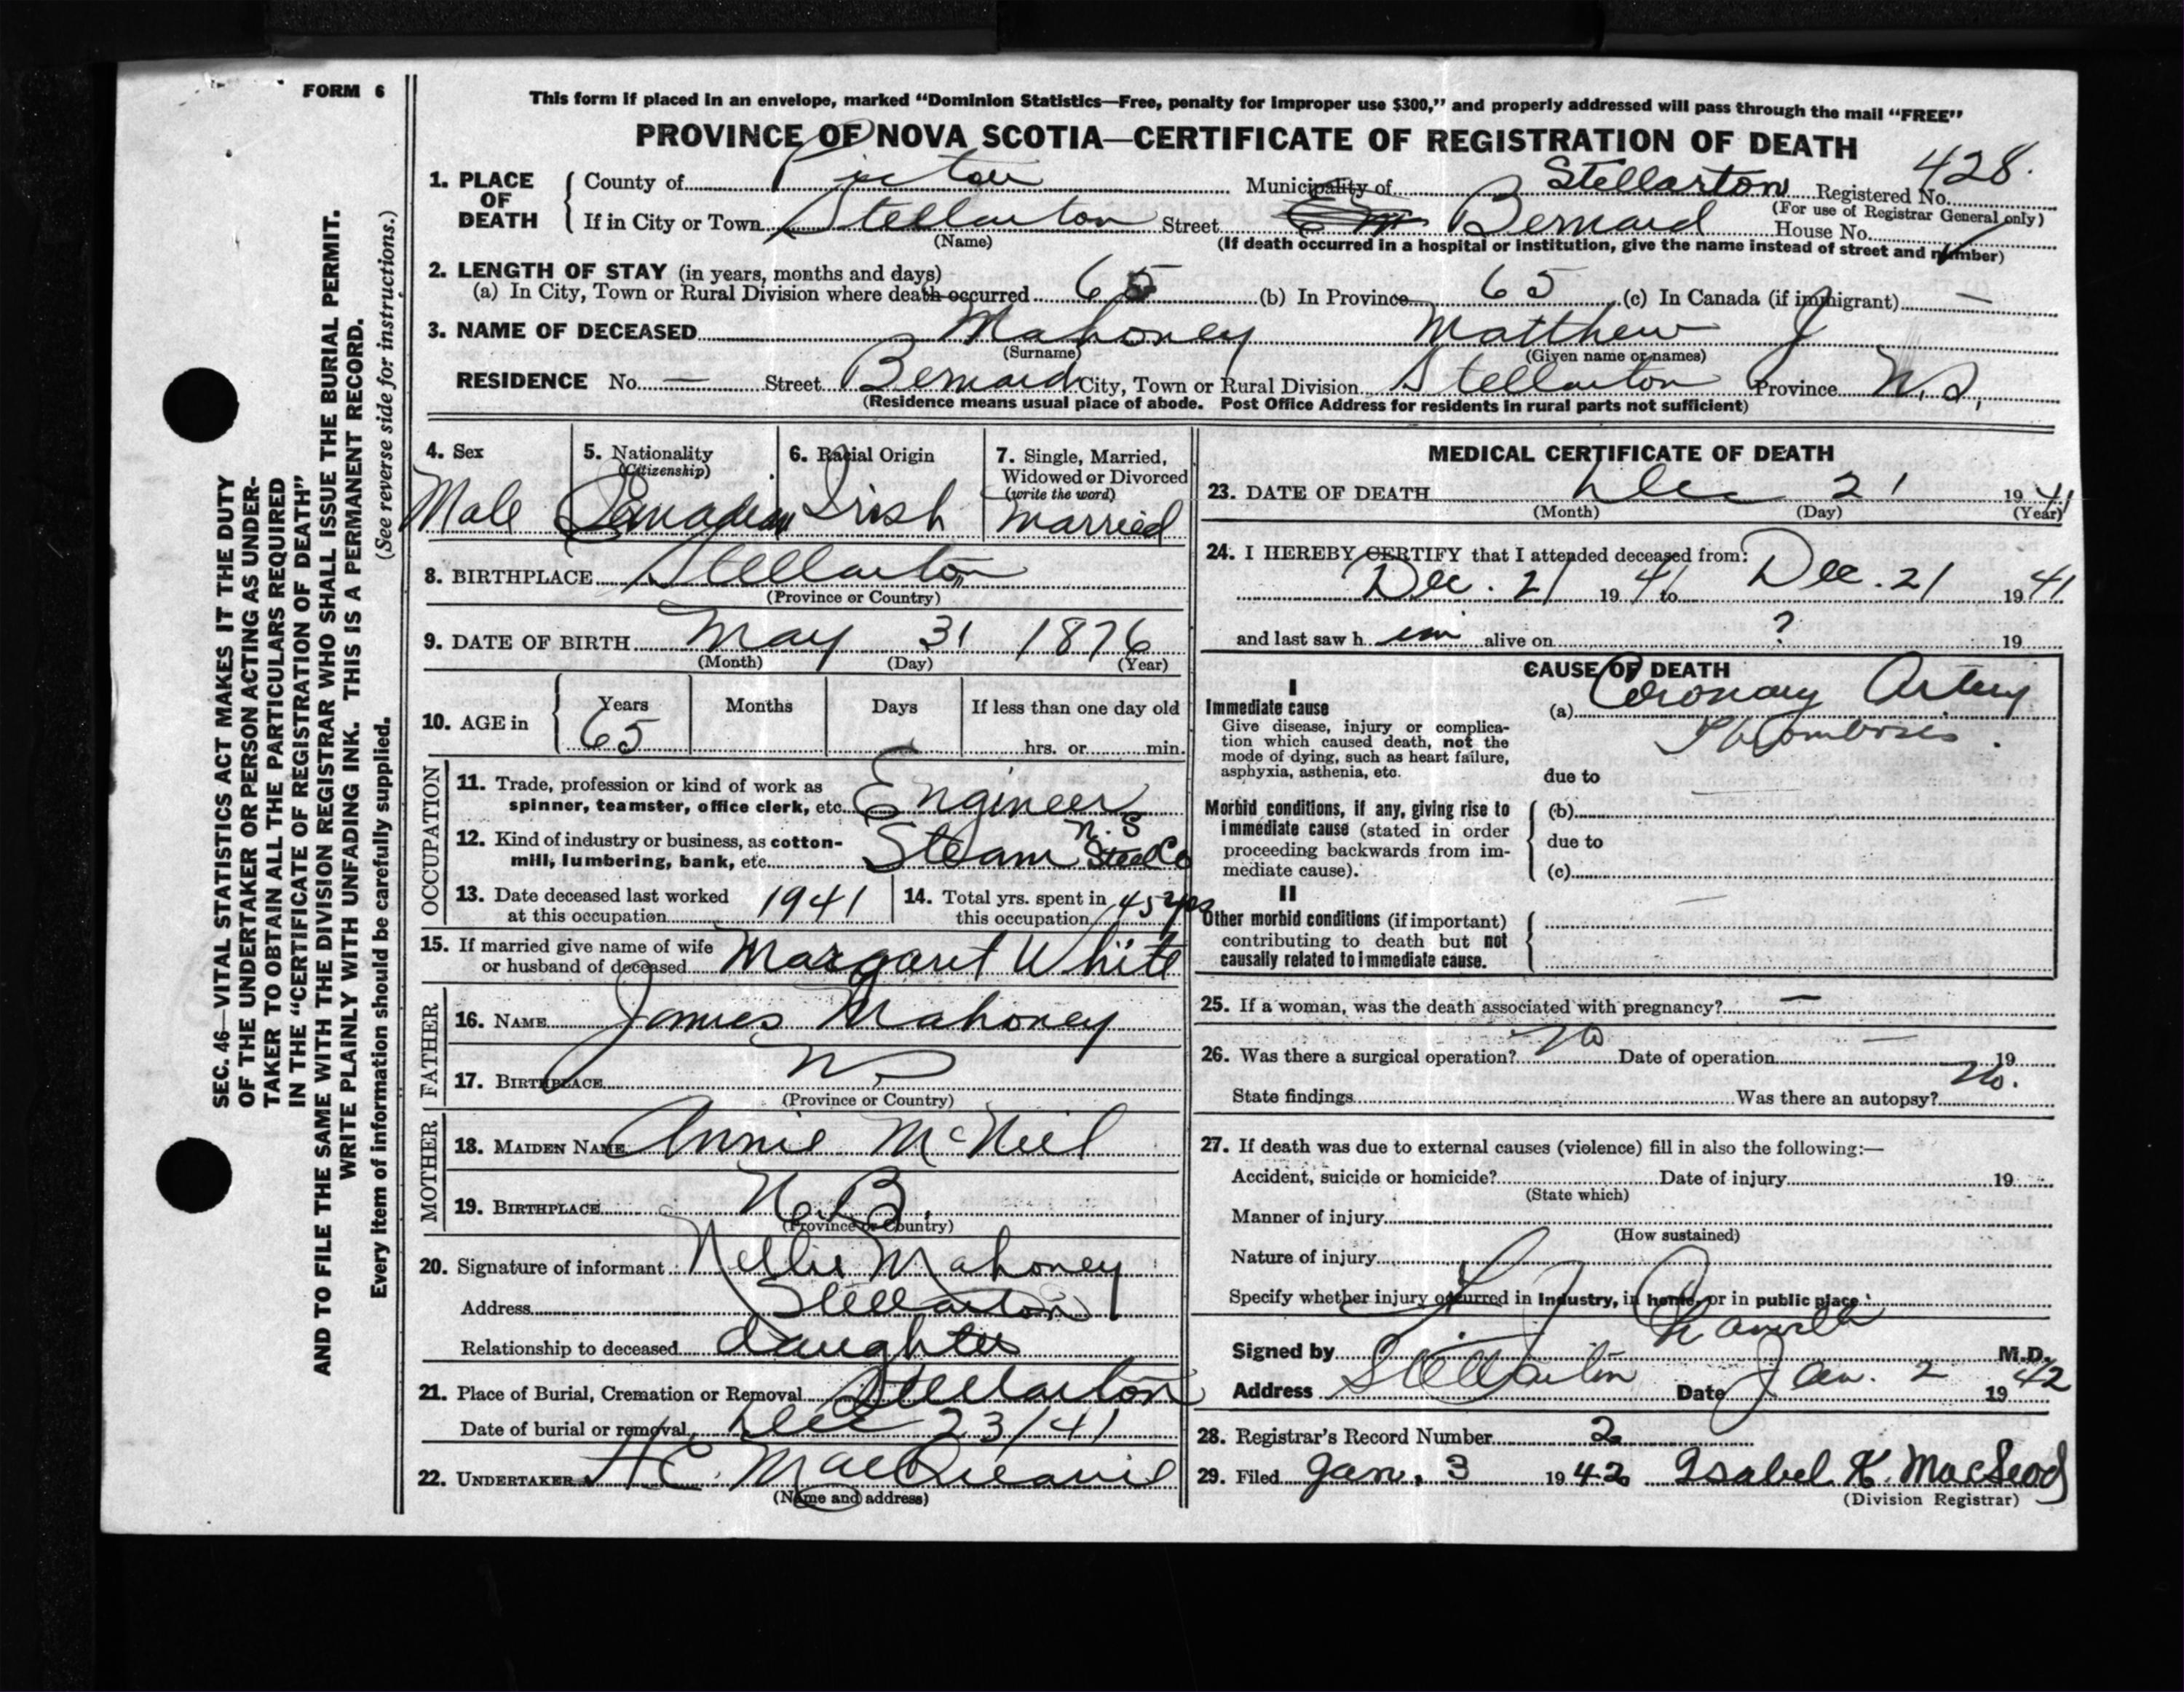 FORM 6
This form if placed in an envelope, marked “Dominion Statistics—Free, penalty for improper use $300,” and properly addressed will pass through the mail “FREE”
PROVINCE OF NOVA SCOTIA—CERTIFICATE OF REGISTRATION OF DEATH
428.
1. PLACE OF DEATH County of Pictou Municipality of Stellarton Registered No.
(For use of Registrar General only)
If in City or Town Stellarton Street Bernard House No.
(Name) (If death occurred in a hospital or institution, give the name instead of street and number)
2. LENGTH OF STAY (in years, months and days)
(a) In City, Town or Rural Division where death occurred 65 (b) In Province 65 (c) In Canada (if immigrant) —
3. NAME OF DECEASED Mahoney Matthew J
(Surname) (Given name or names)
RESIDENCE No. — Street Bernard City, Town or Rural Division Stellarton Province N.S.
(Residence means usual place of abode. Post Office Address for residents in rural parts not sufficient)
4. Sex
Male
5. Nationality
(Citizenship)
Canadian
6. Racial Origin
Irish
7. Single, Married,
Widowed or Divorced
(write the word)
Married
8. BIRTHPLACE Stellarton
(Province or Country)
9. DATE OF BIRTH May 31 1876
(Month) (Day) (Year)
10. AGE in Years Months Days If less than one day old
65 hrs. or min.
OCCUPATION
11. Trade, profession or kind of work as
spinner, teamster, office clerk, etc. Engineer
12. Kind of industry or business, as cotton-
mill, lumbering, bank, etc. Steam N.S Steel Co
13. Date deceased last worked
at this occupation 1941
14. Total yrs. spent in
this occupation 45 yrs
15. If married give name of wife
or husband of deceased Margaret White
FATHER
16. NAME James Mahoney
17. BIRTHPLACE
(Province or Country)
MOTHER
18. MAIDEN NAME Annie McNeil
19. BIRTHPLACE N.B.
(Province or Country)
20. Signature of informant Nellie Mahoney
Address Stellarton
Relationship to deceased daughter
21. Place of Burial, Cremation or Removal Stellarton
Date of burial or removal Dec 23/41
22. UNDERTAKER H.C.
(Name and address)
MEDICAL CERTIFICATE OF DEATH
23. DATE OF DEATH Dec 21 1941
(Month) (Day) (Year)
24. I HEREBY CERTIFY that I attended deceased from:
Dec. 21 1941 to Dec. 21 1941
and last saw him alive on ? 19
CAUSE OF DEATH
I
Immediate cause
Give disease, injury or complica-
tion which caused death, not the
mode of dying, such as heart failure,
asphyxia, asthenia, etc.
(a) Coronary Artery
Thrombosis.
due to
Morbid conditions, if any, giving rise to
immediate cause (stated in order
proceeding backwards from im-
mediate cause).
(b)
due to
(c)
II
Other morbid conditions (if important)
contributing to death but not
causally related to immediate cause.
25. If a woman, was the death associated with pregnancy? —
26. Was there a surgical operation? No Date of operation — 19
State findings Was there an autopsy? No.
27. If death was due to external causes (violence) fill in also the following:—
Accident, suicide or homicide? Date of injury 19
(State which)
Manner of injury
(How sustained)
Nature of injury
Specify whether injury occurred in Industry, in home, or in public place
Signed by M.D.
Address Stellarton Date Jan. 2 1942
28. Registrar's Record Number 2
29. Filed Jan. 3 1942 Isabel K. MacLeod
(Division Registrar)
SEC. 46—VITAL STATISTICS ACT MAKES IT THE DUTY
OF THE UNDERTAKER OR PERSON ACTING AS UNDER-
TAKER TO OBTAIN ALL THE PARTICULARS REQUIRED
IN THE “CERTIFICATE OF REGISTRATION OF DEATH”
AND TO FILE THE SAME WITH THE DIVISION REGISTRAR WHO SHALL ISSUE THE BURIAL PERMIT.
WRITE PLAINLY WITH UNFADING INK. THIS IS A PERMANENT RECORD.
Every item of information should be carefully supplied. (See reverse side for instructions.)